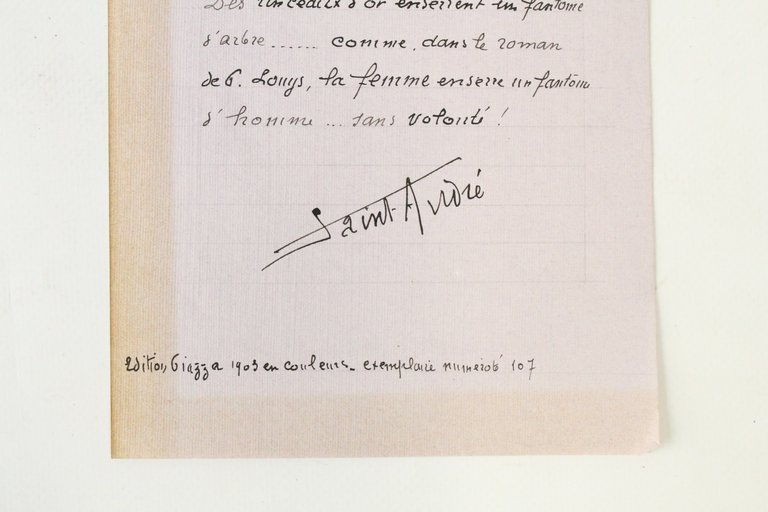 Des rinceaux d'or enserrent un fantôme
d'arbre ...... comme, dans le roman
de P. Louys, la femme enserre un fantôme
d'homme ... sans volonté !
Saint André
Edition Piazza 1903 en couleurs - exemplaire numéroté 107